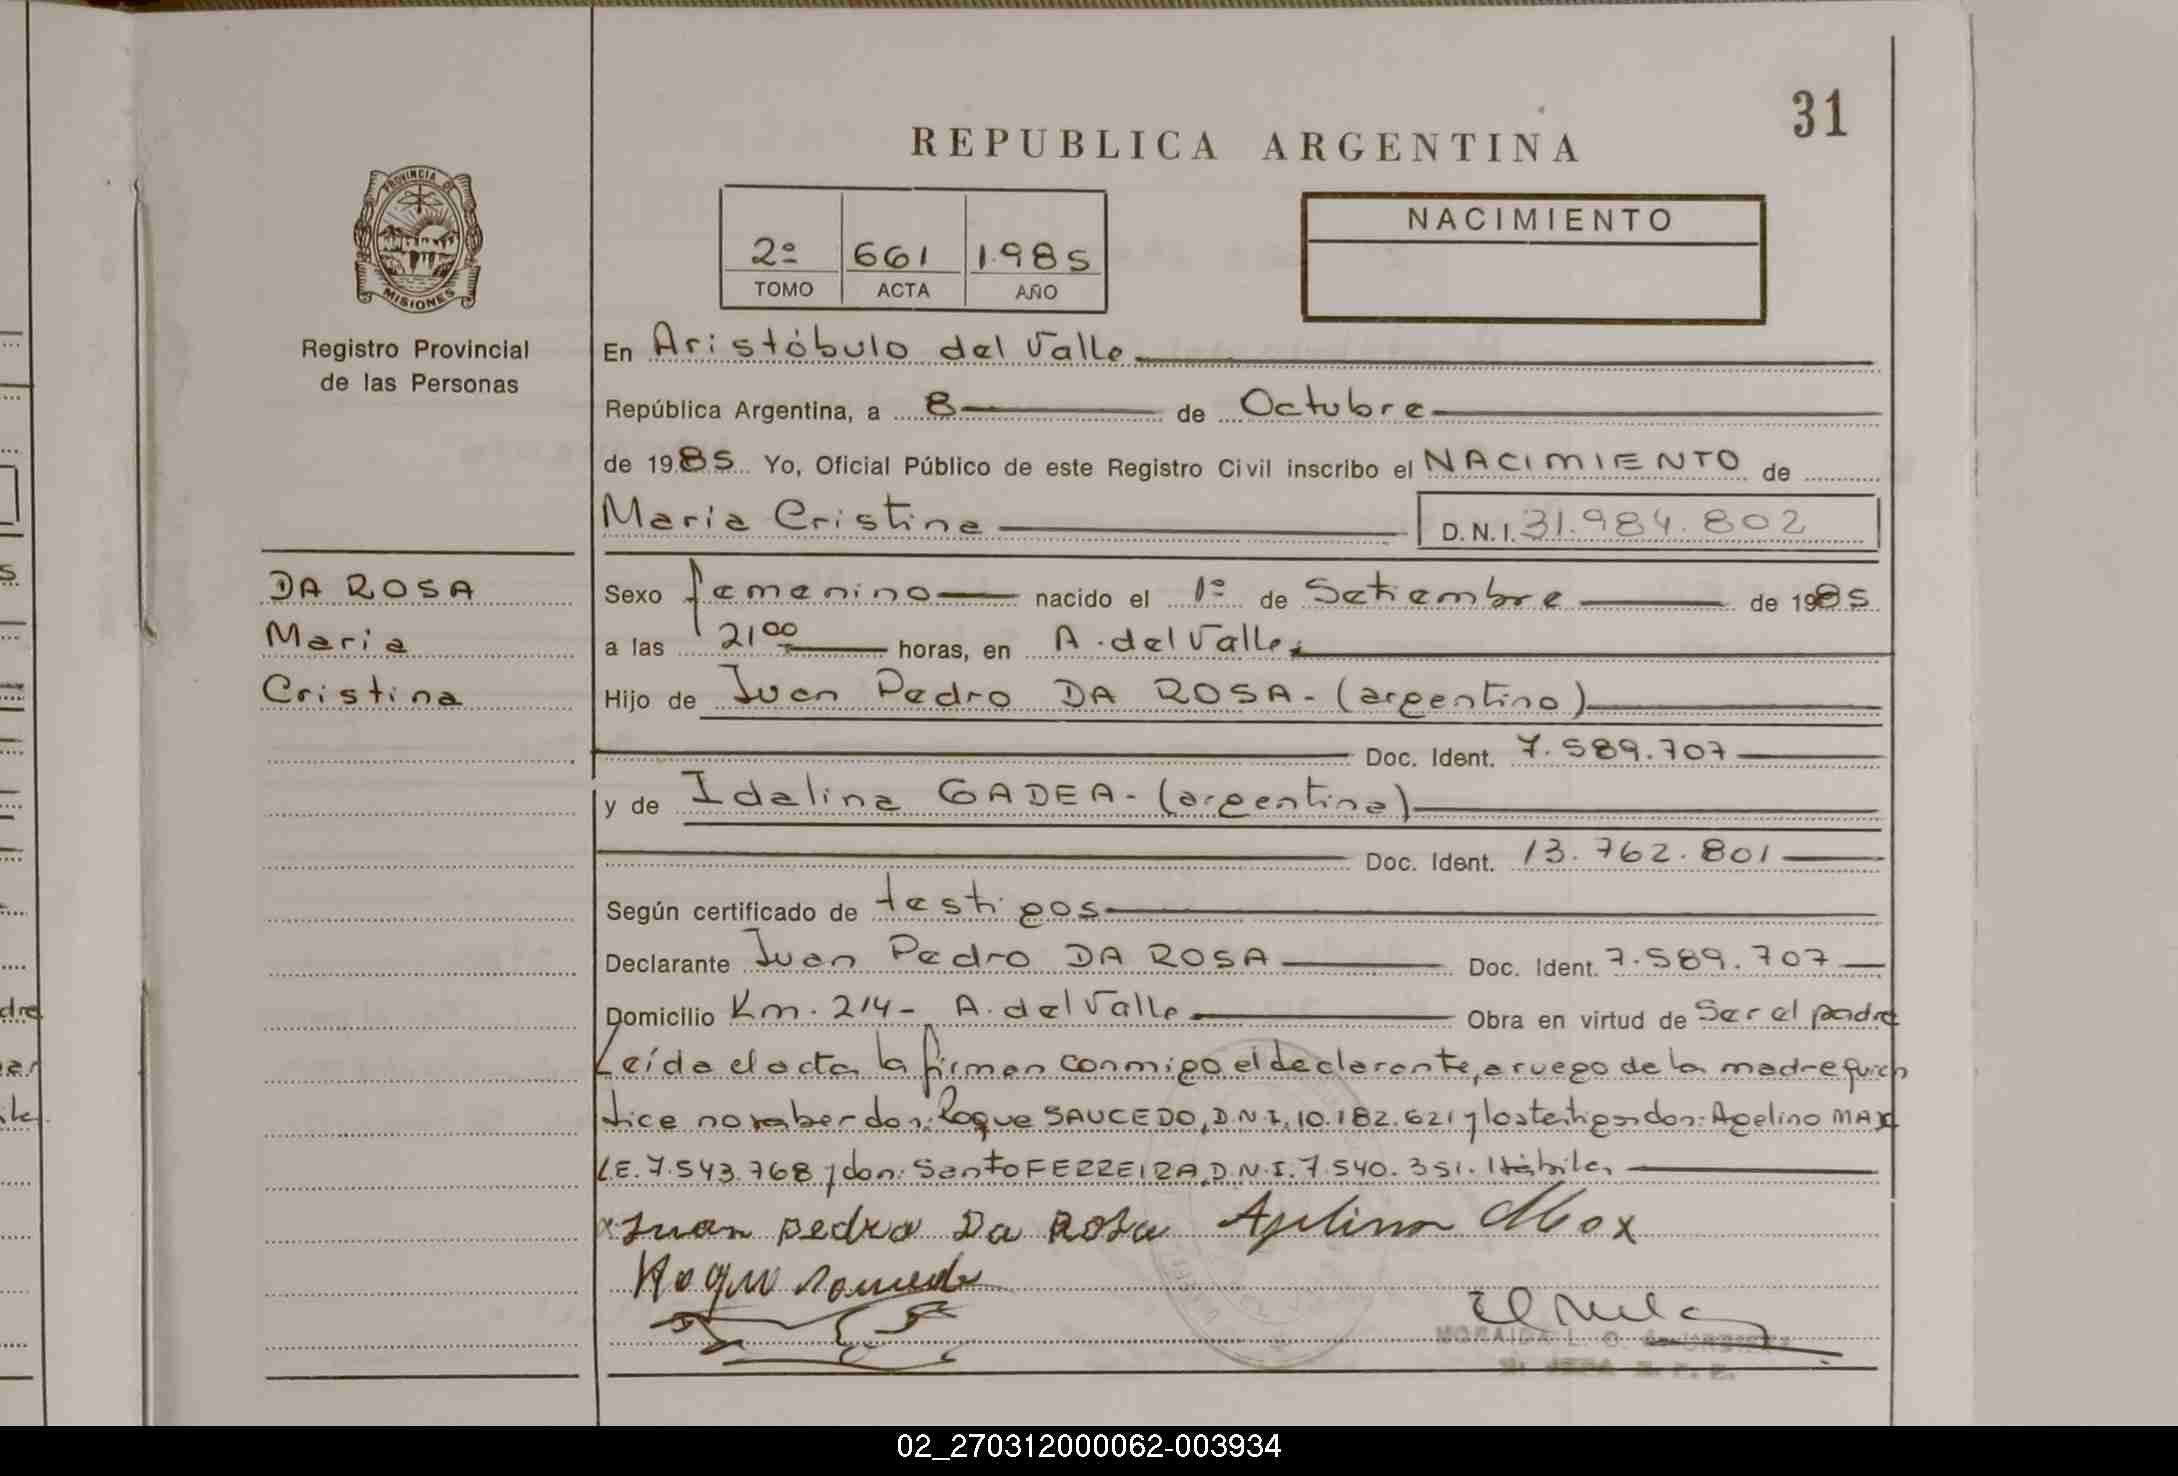 31
REPUBLICA ARGENTINA
PROVINCIA DE
MISIONES
Registro Provincial
de las Personas
2º 661 1.985
TOMO ACTA AÑO
NACIMIENTO
En Aristóbulo del Valle
República Argentina, a 8 de Octubre
de 1985 Yo, Oficial Público de este Registro Civil inscribo el NACIMIENTO de
María Cristina D.N.I. 31.984.802
DA ROSA
María
Cristina
Sexo femenino nacido el 1º de Setiembre de 1985
a las 21 00 horas, en A. del Valle
Hijo de Juan Pedro DA ROSA - (argentino)
Doc. Ident. 7.589.707
y de Idalina GADEA - (argentina)
Doc. Ident. 13.762.801
Según certificado de testigos
Declarante Juan Pedro DA ROSA Doc. Ident. 7.589.707
Domicilio Km. 214 - A. del Valle Obra en virtud de Ser el padre
Leída el acta la firman conmigo el declarante, a ruego de la madre quien
dice no saber don: Roque SAUCEDO, D.N.I. 10.182.621 y los testigos don: Apelino MAX
L.E. 7.543.768 y don: Santo FERREIRA, D.N.I. 7.540.351. Hábiles
Juan pedro Da Rosa Apelino Max
Roque Saucedo
02_270312000062-003934